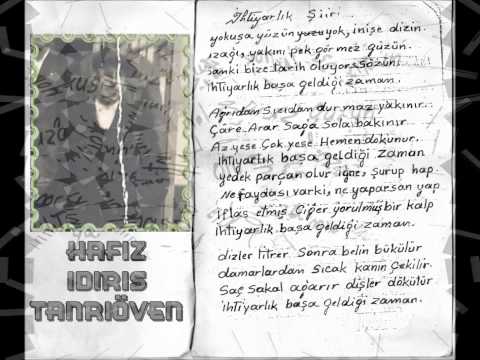 İhtiyarlık Şiiri
yokuşa yüzün yok, inişe dizin.
uzağı, yakını pek görmez gözün.
sanki bize tarih oluyor sözün
ihtiyarlık başa geldiği zaman.
Ağrıdan Sızıdan durmaz yakınır.
Çare Arar Sağa Sola bakınır.
Az yese Çok yese Hemen dökünür.
İhtiyarlık başa geldiği Zaman
yedek parçan olur iğne, Şurup hap.
Ne faydası varki, ne yaparsan yap
iflas etmiş Ciğer yorulmuş bir kalp
ihtiyarlık başa geldiği zaman.
dizler titrer Sonra belin bükülür
damarlardan Sıcak kanın Çekilir.
Saç Sakal ağarır dişler dökülür
ihtiyarlık başa geldiği zaman.
HAFIZ
IDIRIS
TANRIÖVEN